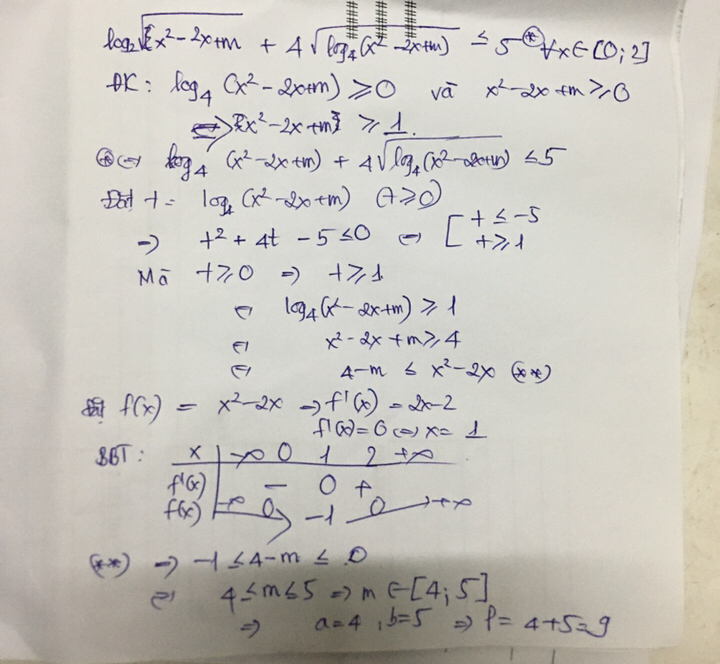 log₂√(x²-2x+m) + 4√(log₄(x²-2x+m)) ≤ 5 (*) ∀x∈[0;2]
ĐK: log₄(x²-2x+m) ≥0 và x²-2x+m ≥0
⇔ x²-2x+m ≥ 1.
(*) ⇔ log₄(x²-2x+m) + 4√(log₄(x²-2x+m)) ≤5
Đặt t = log₄(x²-2x+m) (t≥0)
⇒ t²+4t-5≤0 ⇔ [ t ≤ -5
t ≥ 1
Mà t≥0 ⇒ t≥1
⇔ log₄(x²-2x+m) ≥ 1
⇔ x²-2x+m≥4
⇔ 4-m ≤ x²-2x (**)
Đặt f(x) = x²-2x ⇒ f'(x) = 2x-2
f'(x)=0 ⇔ x= 1
BBT: x -∞ 0 1 2 +∞
f'(x) - 0 +
f(x) -∞ 0 -1 0 +∞
(**) ⇒ -1 ≤4-m ≤ 0
⇔ 4≤m≤5 ⇒ m∈[4;5]
⇒ a=4, b=5 ⇒ P= 4+5=9